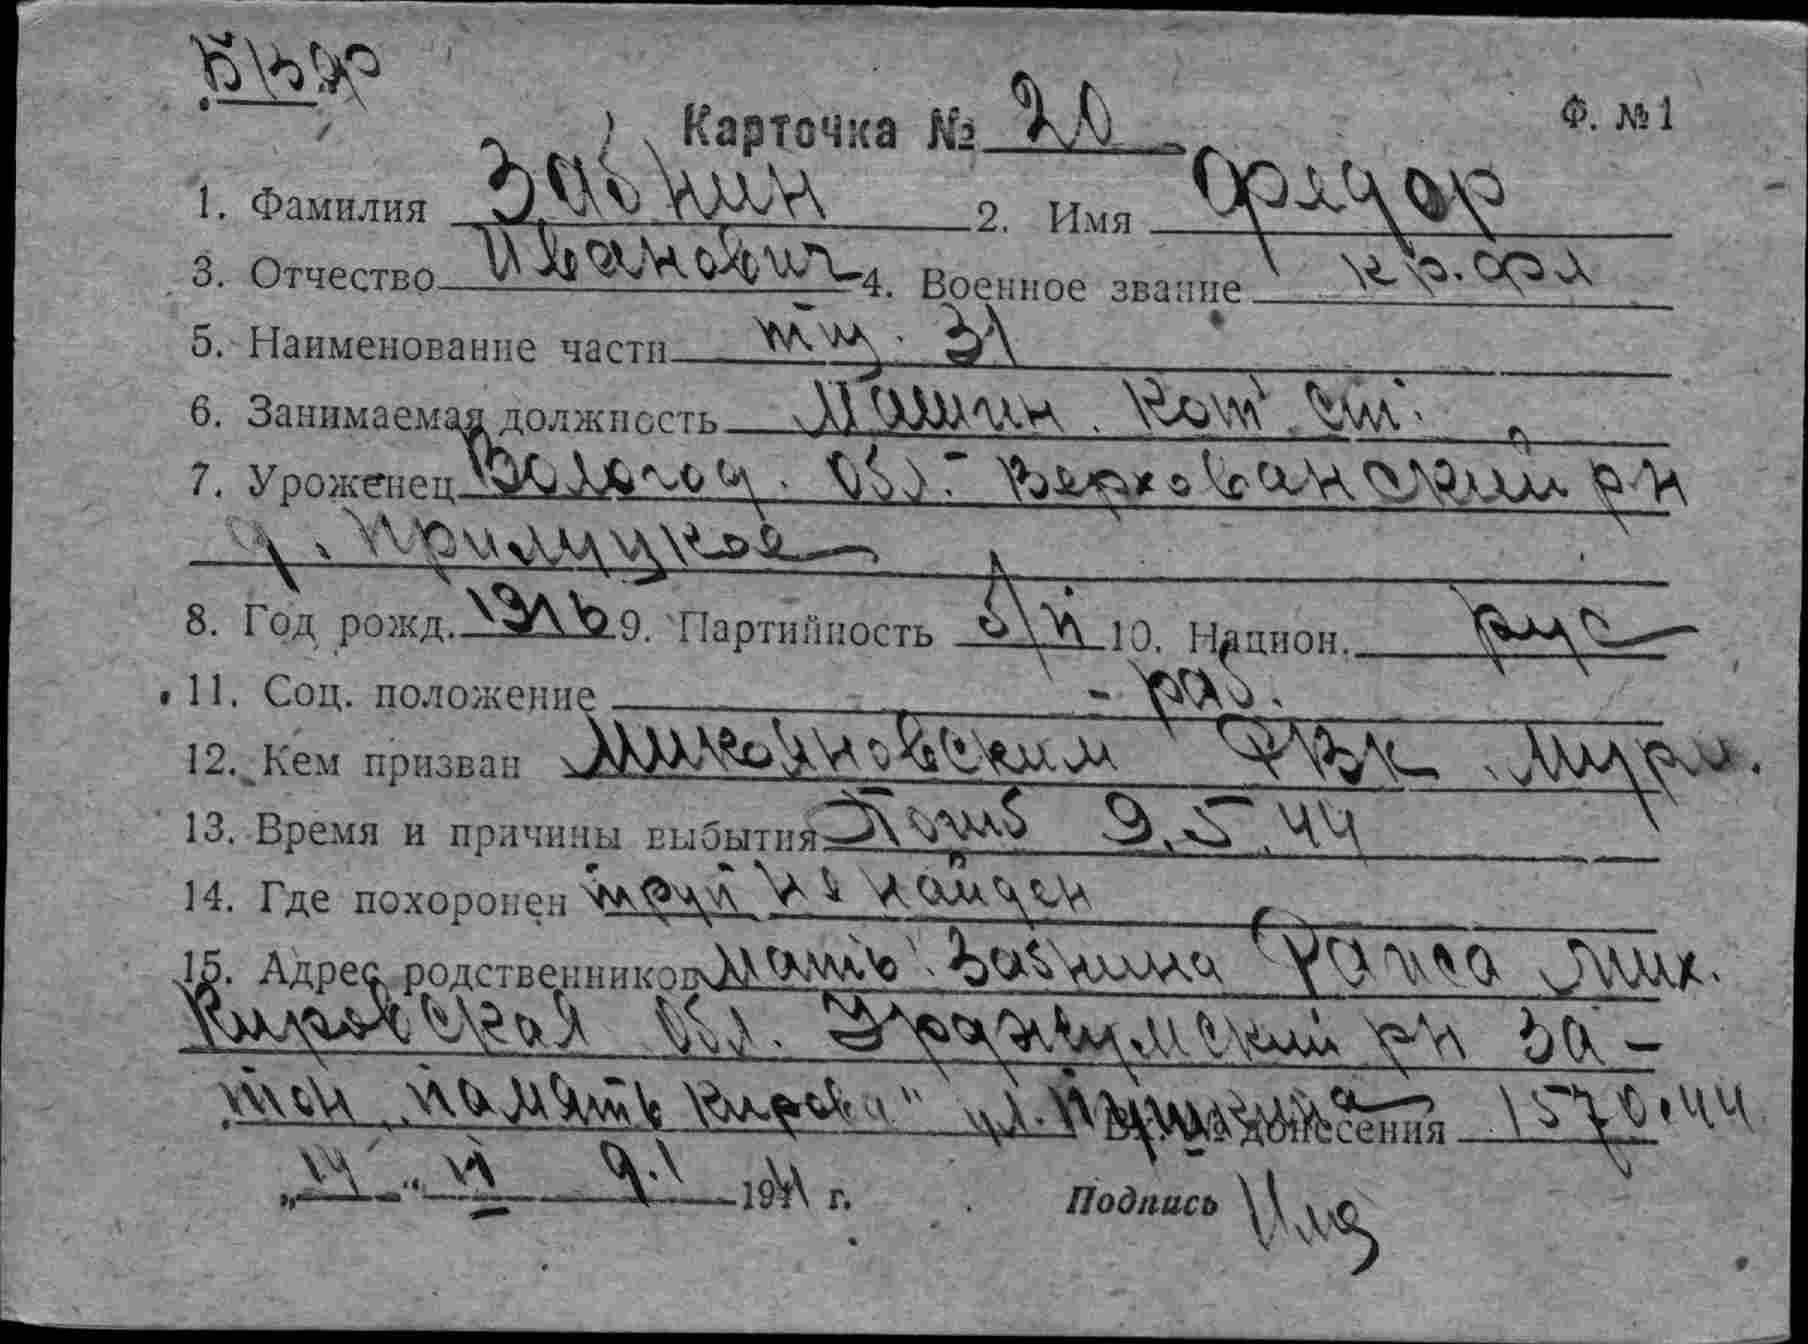 Карточка № 20 Ф. №1
1. Фамилия Забнин 2. Имя Фядор
3. Отчество Иванович 4. Военное звание кр. фл
5. Наименование части тщ. 31
6. Занимаемая должность Машин. Кот. ст.
7. Уроженец Вологод. обл. Верхованский рн
д. Прилуцкое
8. Год рожд. 1916 9. Партийность б/п 10. Национ. рус
11. Соц. положение - раб.
12. Кем призван Микояновским РВК. Мурм.
13. Время и причины выбытия Погиб 9.5.44
14. Где похоронен труп не найден
15. Адрес родственников мать Забнина Раиса Мих.
Кировская обл. Уржумский рн за-
тон "память Кирова" ул. Пушкина
Вх. № донесения 1570.44
„14" VI 1944 г. Подпись